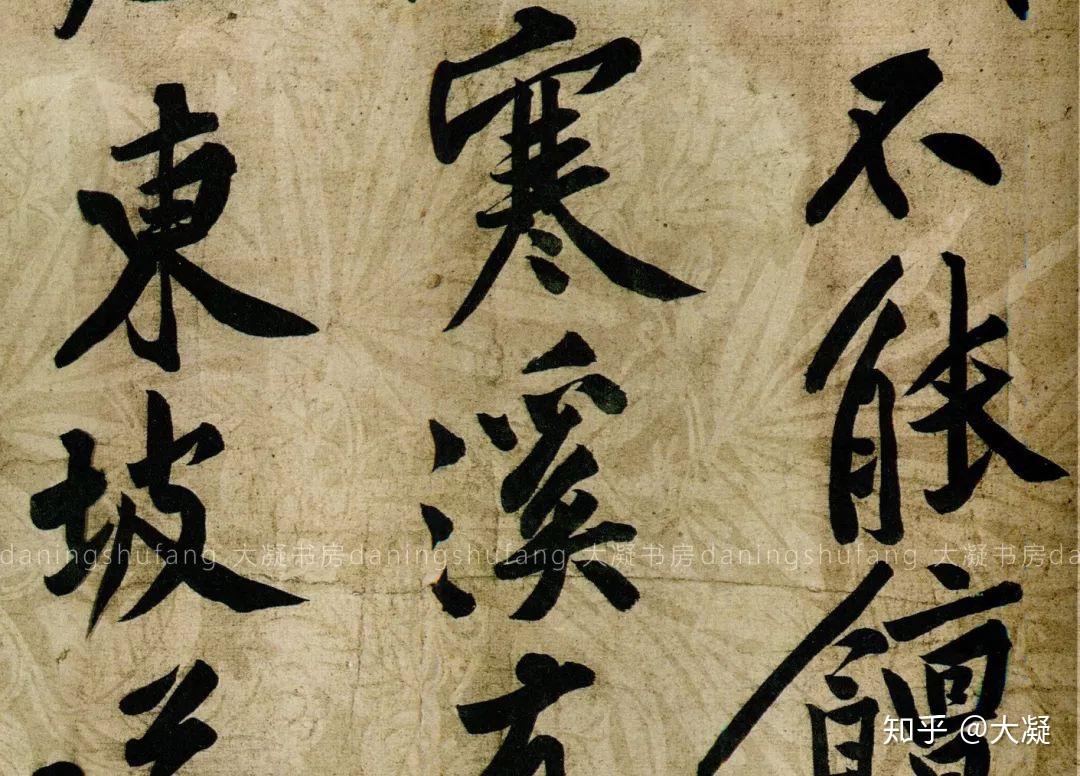 不能饘
寒溪有
東坡
daningshufang 大凝书房daningshufang 大凝书房daningshufang 大凝书房da
知乎 @大凝